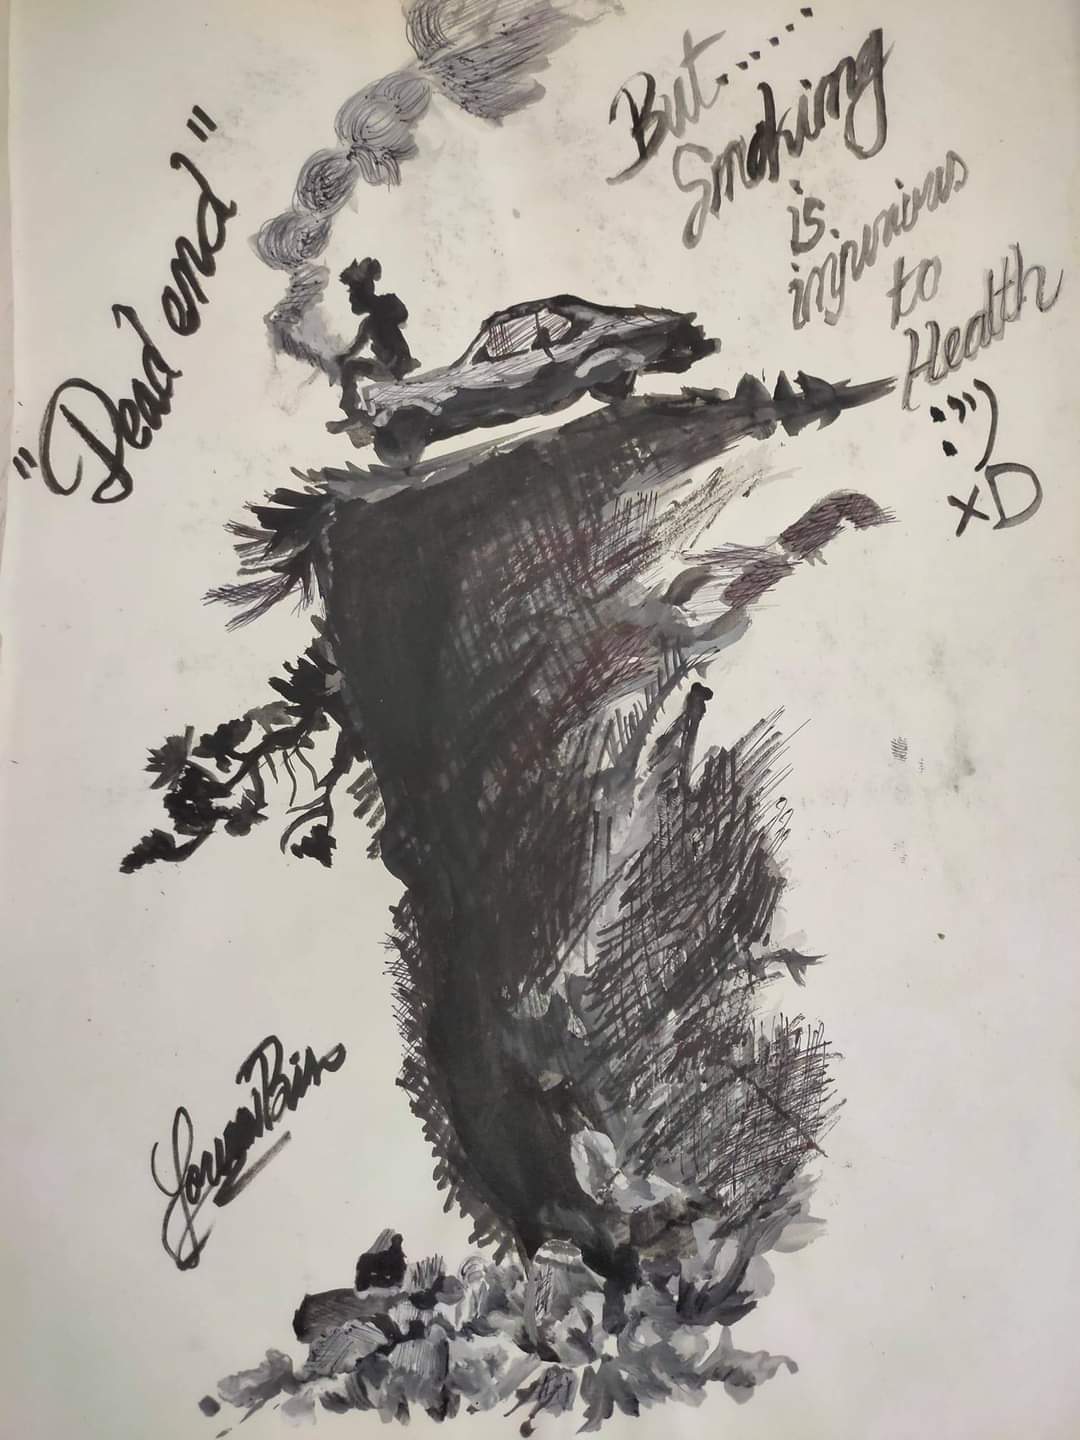 "Dead end"
But.......
Smoking
is
injurious
to
Health
xD